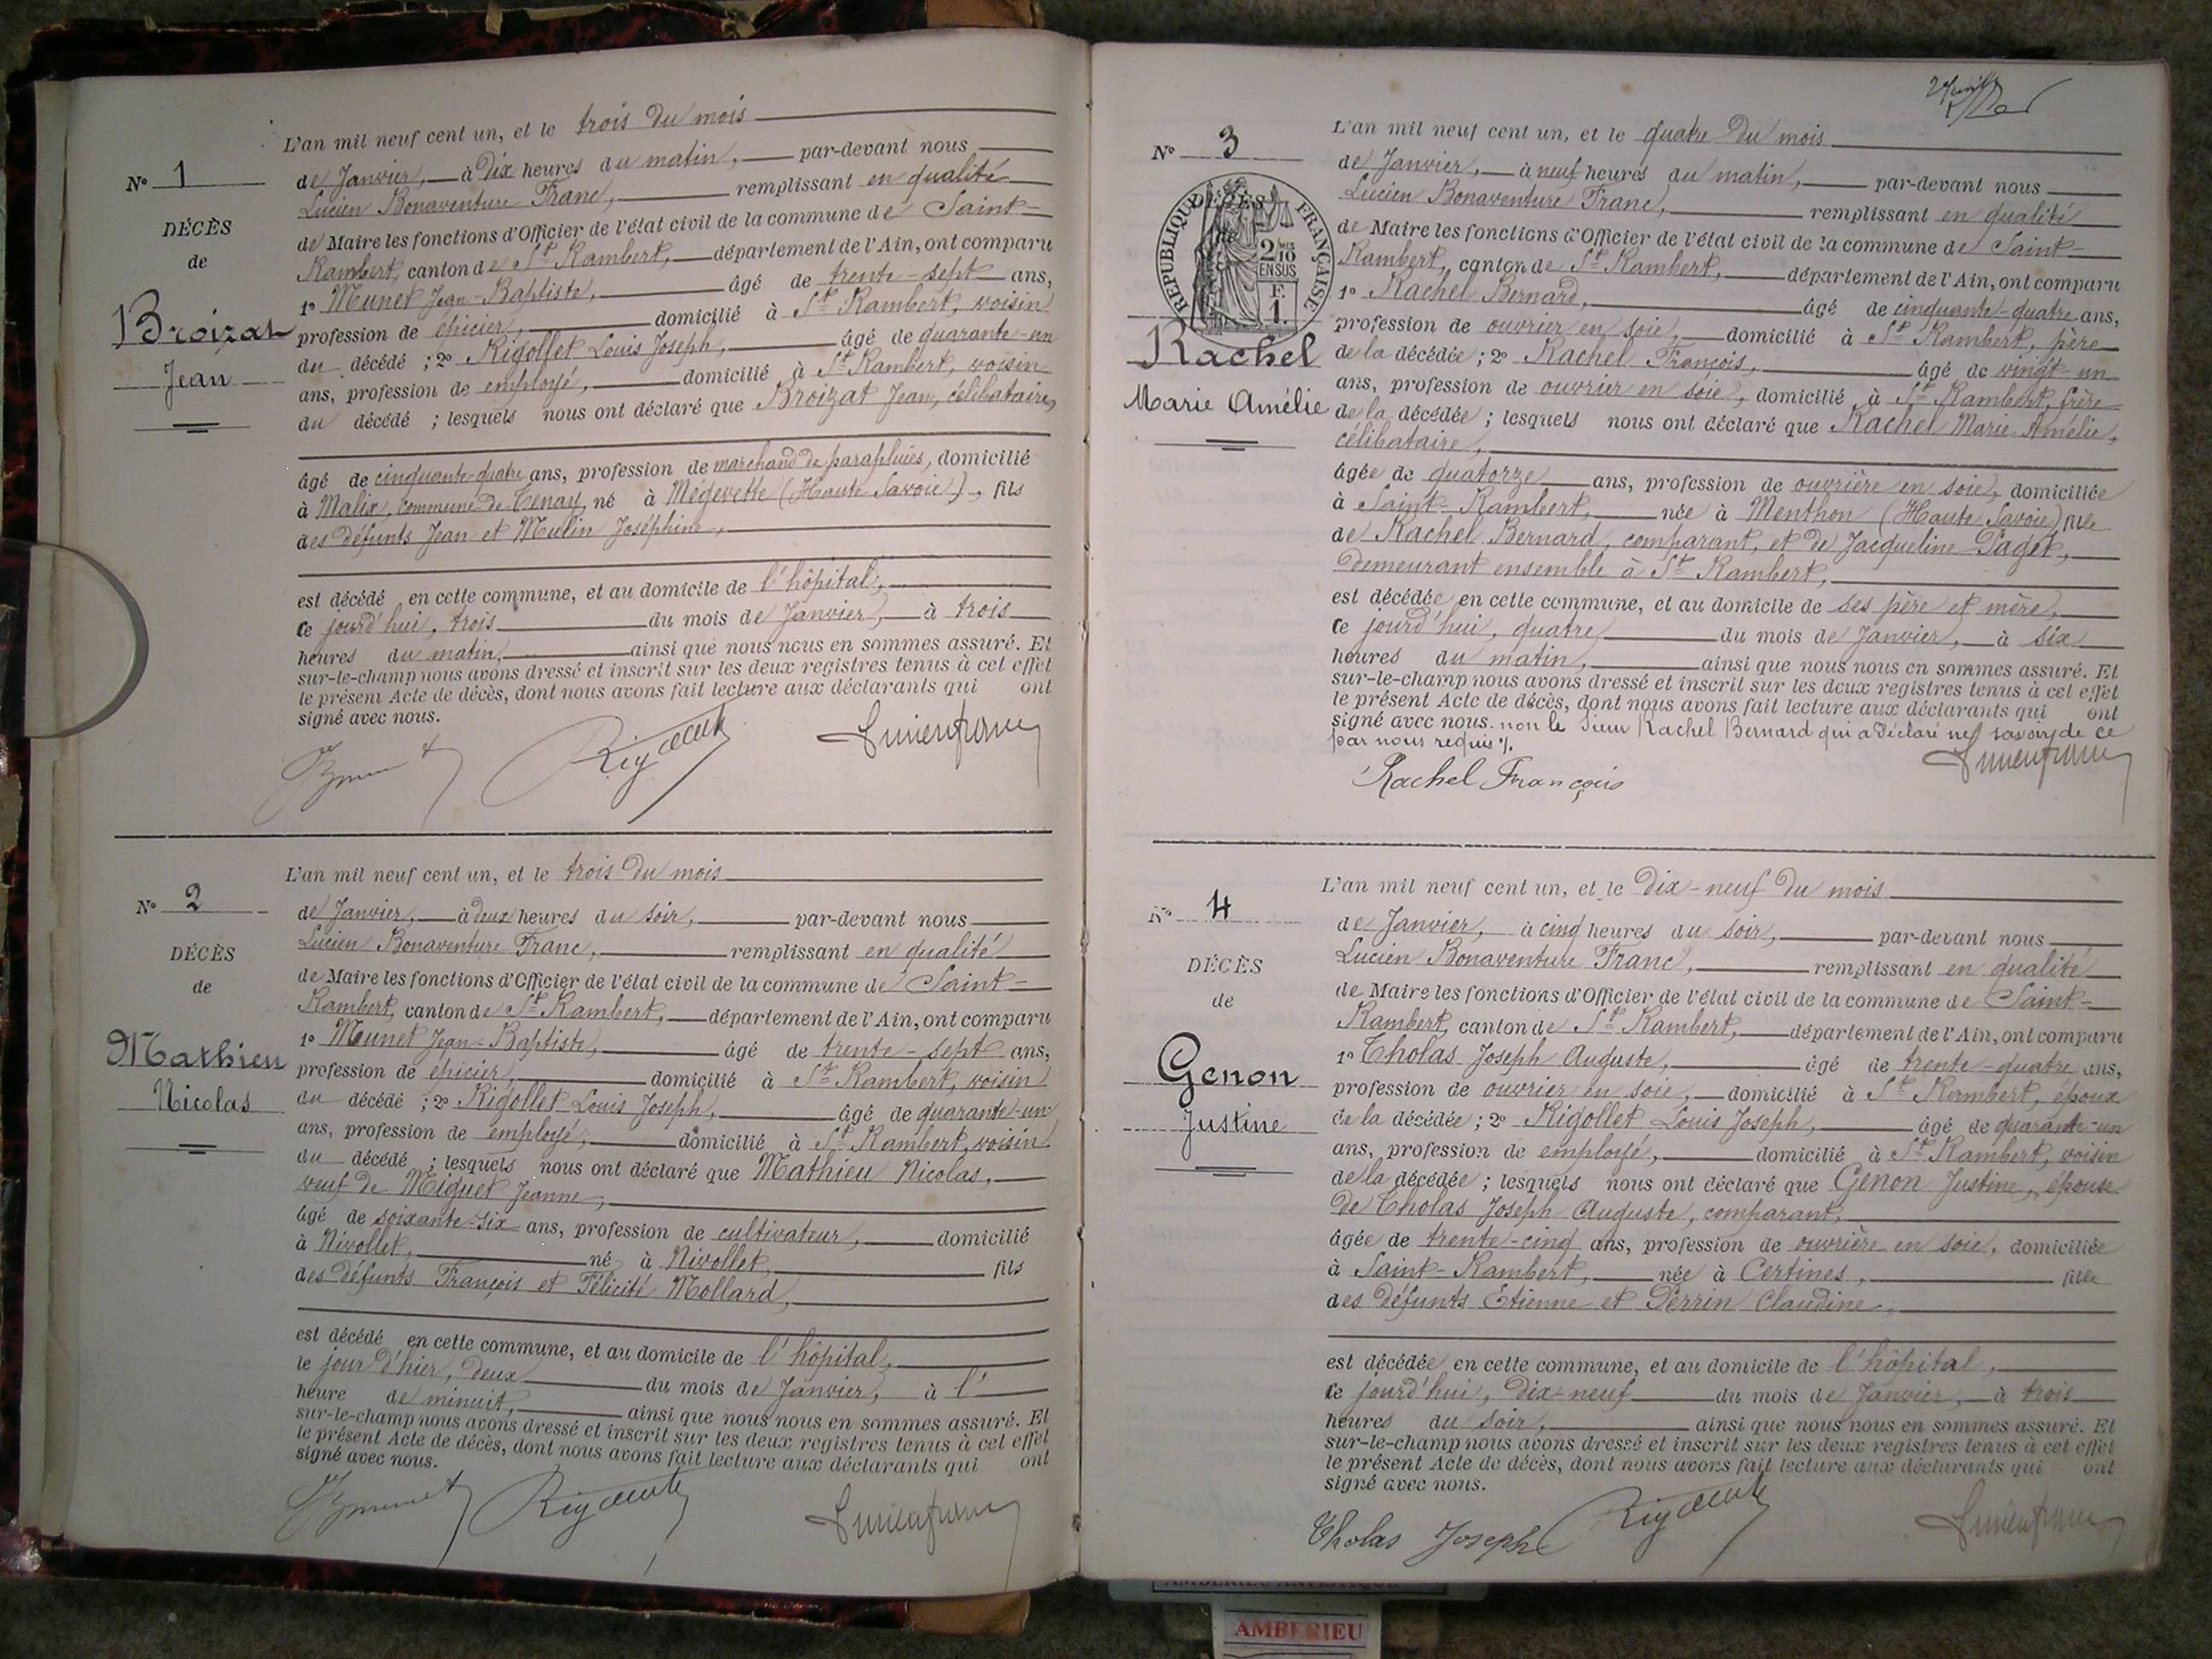 L'an mil neuf cent un, et le trois du mois
N° 1
de Janvier, à dix heures du matin, par-devant nous
Lucien Bonaventure Franc, remplissant en qualité
DÉCÈS
de
de Maire les fonctions d'Officier de l'état civil de la commune de Saint-
Rambert, canton de St Rambert, département de l'Ain, ont comparu
1° Munet Jean-Baptiste, âgé de trente-sept ans,
Broizat
Jean
profession de épicier, domicilié à St Rambert, voisin
du décédé ; 2° Rigollet Louis Joseph, âgé de quarante-un
ans, profession de employé, domicilié à St Rambert, voisin
du décédé ; lesquels nous ont déclaré que Broizat Jean, célibataire,
âgé de cinquante-quatre ans, profession de marchand de parapluies, domicilié
à Malix, commune de Tenay, né à Mégevette (Haute Savoie), fils
des défunts Jean et Mulin Joséphine,
est décédé en cette commune, et au domicile de l'hôpital,
ce jourd'hui, trois du mois de Janvier, à trois
heures du matin, ainsi que nous nous en sommes assuré. Et
sur-le-champ nous avons dressé et inscrit sur les deux registres tenus à cet effet
le présent Acte de décès, dont nous avons fait lecture aux déclarants qui ont
signé avec nous.
L'an mil neuf cent un, et le trois du mois
N° 2
de Janvier, à deux heures du soir, par-devant nous
Lucien Bonaventure Franc, remplissant en qualité
DÉCÈS
de
de Maire les fonctions d'Officier de l'état civil de la commune de Saint-
Rambert, canton de St Rambert, département de l'Ain, ont comparu
1° Munet Jean-Baptiste, âgé de trente-sept ans,
Mathieu
Nicolas
profession de épicier, domicilié à St Rambert, voisin
du décédé ; 2° Rigollet Louis Joseph, âgé de quarante-un
ans, profession de employé, domicilié à St Rambert, voisin
du décédé ; lesquels nous ont déclaré que Mathieu Nicolas,
veuf de Miguet Jeanne,
âgé de soixante-six ans, profession de cultivateur, domicilié
à Nivollet, né à Nivollet, fils
des défunts François et Félicité Mollard,
est décédé en cette commune, et au domicile de l'hôpital,
le jour d'hier, deux du mois de Janvier, à l'
heure de minuit, ainsi que nous nous en sommes assuré. Et
sur-le-champ nous avons dressé et inscrit sur les deux registres tenus à cet effet
le présent Acte de décès, dont nous avons fait lecture aux déclarants qui ont
signé avec nous.
L'an mil neuf cent un, et le quatre du mois
N° 3
de Janvier, à neuf heures du matin, par-devant nous
Lucien Bonaventure Franc, remplissant en qualité
DÉCÈS
RÉPUBLIQUE FRANÇAISE
2 MES
10
EN SUS
F.
1.
de Maire les fonctions d'Officier de l'état civil de la commune de Saint-
Rambert, canton de St Rambert, département de l'Ain, ont comparu
1° Rachel Bernard, âgé de cinquante-quatre ans,
profession de ouvrier en soie, domicilié à St Rambert, père
Rachel
Marie Amélie
de la décédée ; 2° Rachel François, âgé de vingt-un
ans, profession de ouvrier en soie, domicilié à St Rambert, frère
de la décédée ; lesquels nous ont déclaré que Rachel Marie Amélie,
célibataire,
âgée de quatorze ans, profession de ouvrière en soie, domiciliée
à Saint-Rambert, née à Menthon (Haute Savoie) fille
de Rachel Bernard, comparant, et de Jacqueline Paget,
demeurant ensemble à St Rambert,
est décédée en cette commune, et au domicile de ses père et mère,
ce jourd'hui, quatre du mois de Janvier, à six
heures du matin, ainsi que nous nous en sommes assuré. Et
sur-le-champ nous avons dressé et inscrit sur les deux registres tenus à cet effet
le présent Acte de décès, dont nous avons fait lecture aux déclarants qui ont
signé avec nous. non le sieur Rachel Bernard qui a déclaré ne savoir, de ce
par nous requis.
Rachel François
L'an mil neuf cent un, et le dix-neuf du mois
N° 4
de Janvier, à cinq heures du soir, par-devant nous
Lucien Bonaventure Franc, remplissant en qualité
DÉCÈS
de
de Maire les fonctions d'Officier de l'état civil de la commune de Saint-
Rambert, canton de St Rambert, département de l'Ain, ont comparu
1° Tholas Joseph Auguste, âgé de trente-quatre ans,
Genon
Justine
profession de ouvrier en soie, domicilié à St Rambert, époux
de la décédée ; 2° Rigollet Louis Joseph, âgé de quarante-un
ans, profession de employé, domicilié à St Rambert, voisin
de la décédée ; lesquels nous ont déclaré que Genon Justine, épouse
de Tholas Joseph Auguste, comparant,
âgée de trente-cinq ans, profession de ouvrière en soie, domiciliée
à Saint-Rambert, née à Certines, fille
des défunts Etienne et Perrin Claudine,
est décédée en cette commune, et au domicile de l'hôpital,
ce jourd'hui, dix-neuf du mois de Janvier, à trois
heures du soir, ainsi que nous nous en sommes assuré. Et
sur-le-champ nous avons dressé et inscrit sur les deux registres tenus à cet effet
le présent Acte de décès, dont nous avons fait lecture aux déclarants qui ont
signé avec nous.
Tholas Joseph
AMBERIEU